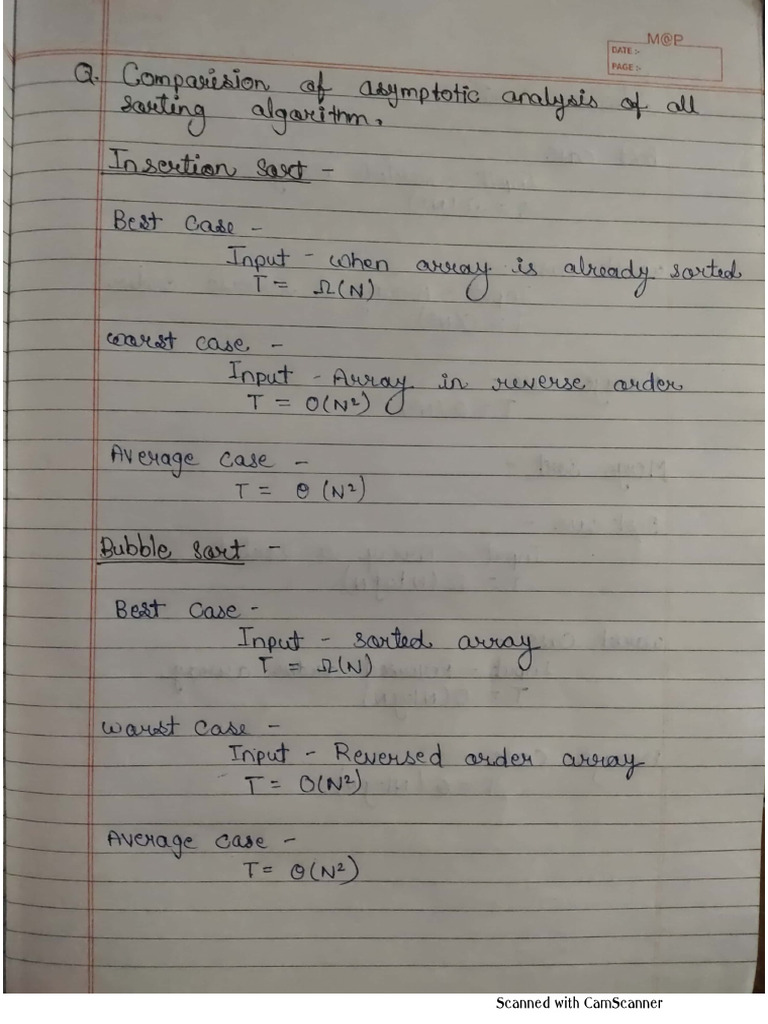 M@P
DATE :-
PAGE :-
Q. Comparision of asymptotic analysis of all
sorting algorithm.
Insertion Sort -
Best Case -
Input - when array is already sorted
T = Ω(N)
worst case -
Input - Array in reverse order
T = O(N²)
Average case -
T = Θ (N²)
Bubble sort -
Best Case -
Input - sorted array
T = Ω(N)
worst case -
Input - Reversed order array
T = O(N²)
Average case -
T = Θ(N²)
Scanned with CamScanner